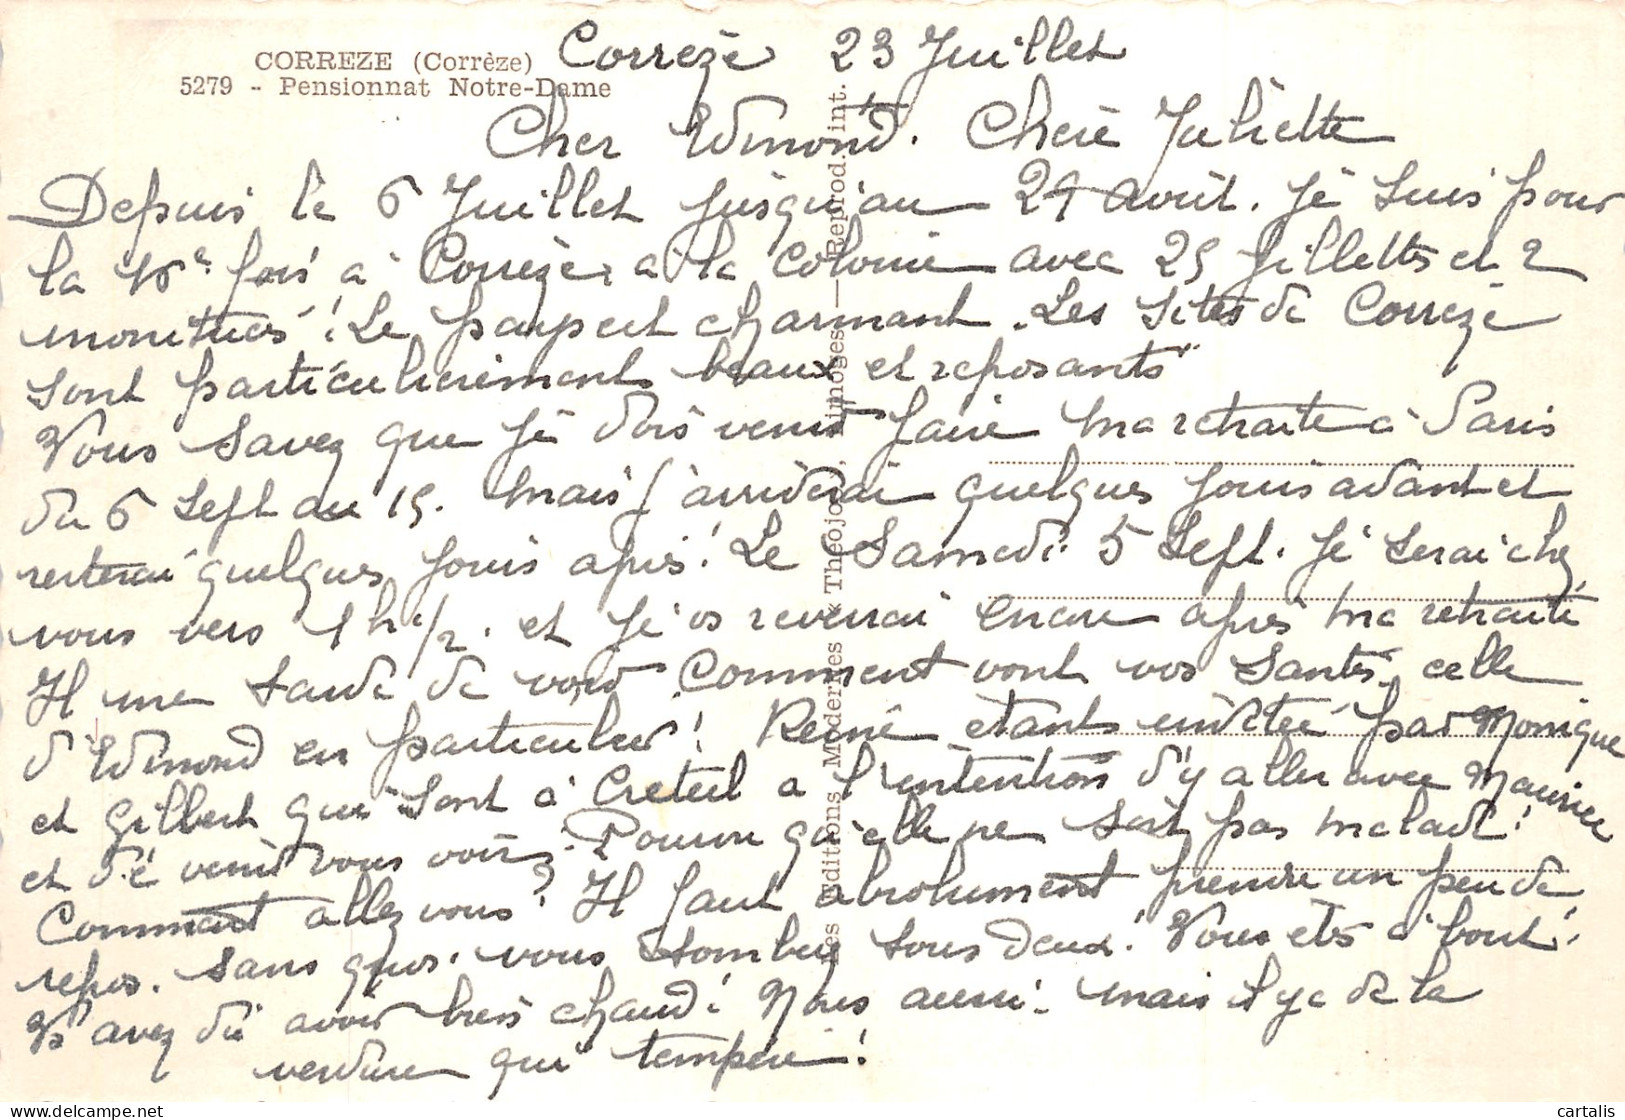 CORREZE (Corrèze)
5279 - Pensionnat Notre-Dame
Corrèze 23 Juillet
Cher Edmond. Chère Juliette
Depuis le 6 Juillet jusqu'au 29 août. Je suis pour
la 16e fois à Corrèze, à la colonie avec 25 fillettes et 2
monitrices ! Le parc est charmant. Les sites de Corrèze
sont particulièrement beaux et reposants
Vous savez que je dois venir faire ma retraite à Paris
du 6 Sept au 15. mais j'arriverai quelques jours avant et
resterai quelques jours après ! Le Samedi 5 Sept. je serai chez
vous vers 1 h 1/2. et je vs reverrai encore après ma retraite
Il me tarde de vs voir. Comment vont vos santés, celle
d'Edmond en particulier ! Reine étant invitée par Monique
et Gilbert qui sont à Creteil a l'intention d'y aller avec Maurice
et de venir vous voir. Pourvu qu'elle ne soit pas malade !
Comment allez vous ? Il faut absolument prendre un peu de
repos. Sans quoi. vous tombez tous deux ! Vous êtes à bout !
Vs avez dû avoir très chaud ! Nous aussi. mais il y a de la
verdure qui tempère !
Editions Modernes « Théojac », Limoges — Reprod. int.
cartalis